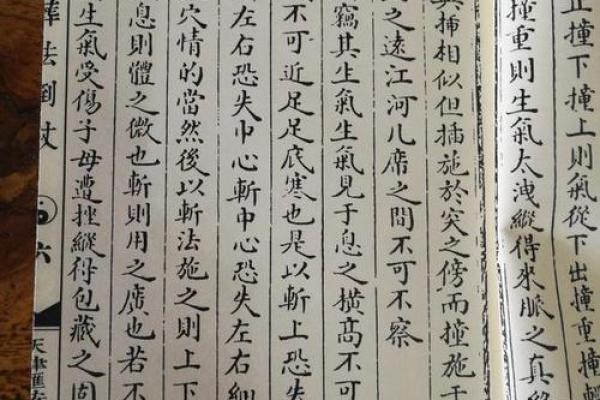 撞下撞上則氣從下出撞重撞
撞重則生氣太洩縱得來脈之真
插相似但插施於突之傍而撞施于
之遠江河几席之間不可不察
竊其生氣生氣見于息之橫高不可
不可近足足底寒也是以斬上恐失
左右恐失中心斬中心恐失左右細
穴情的當然後以斬法施之則上下
息則體之微也斬則用之廣也若不
生氣受傷子母遭挫縱得包藏之固
葬法倒杖
六
天津匯